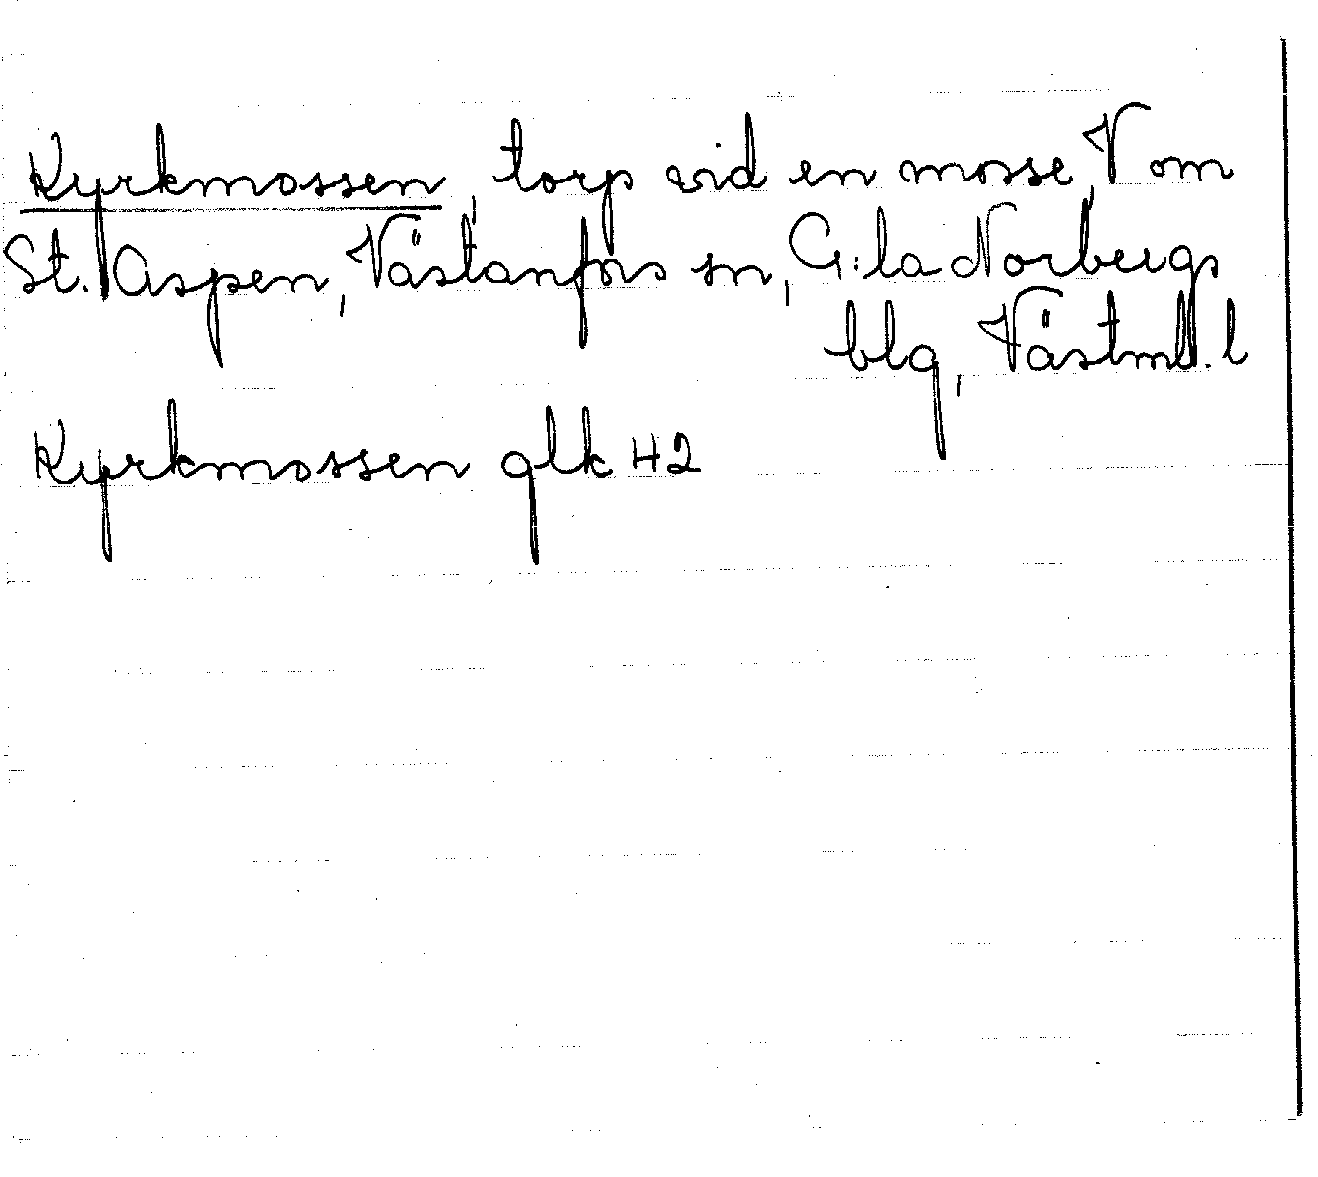 Kyrkmossen, torp vid en mosse, V om
St. Aspen, Västanfors sn, G:la Norbergs
blg, Västml. l
Kyrkmossen glk 42